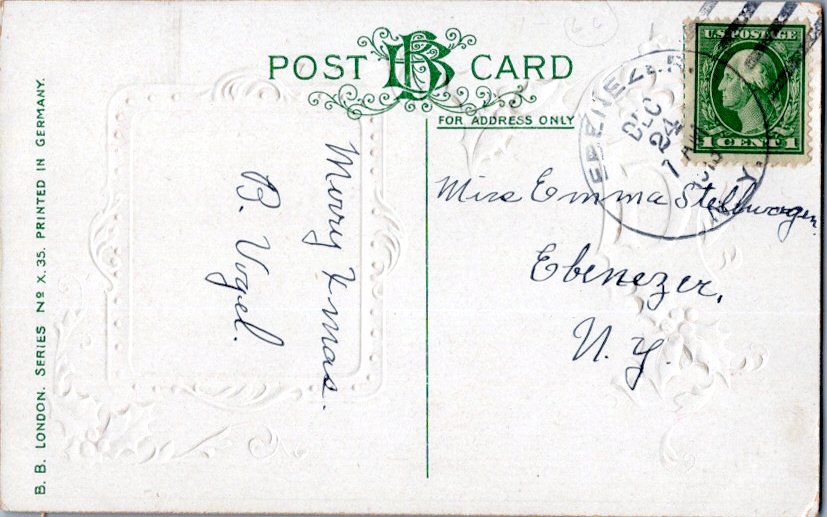 POST CARD
FOR ADDRESS ONLY
U.S. POSTAGE
1 CENT 1
EBENEZER
DEC
24
N.Y.
Merry Xmas.
B. Vogel.
Miss Emma Stellwagen
Ebenezer,
N.Y.
B. B. LONDON. SERIES Nº X. 35. PRINTED IN GERMANY.